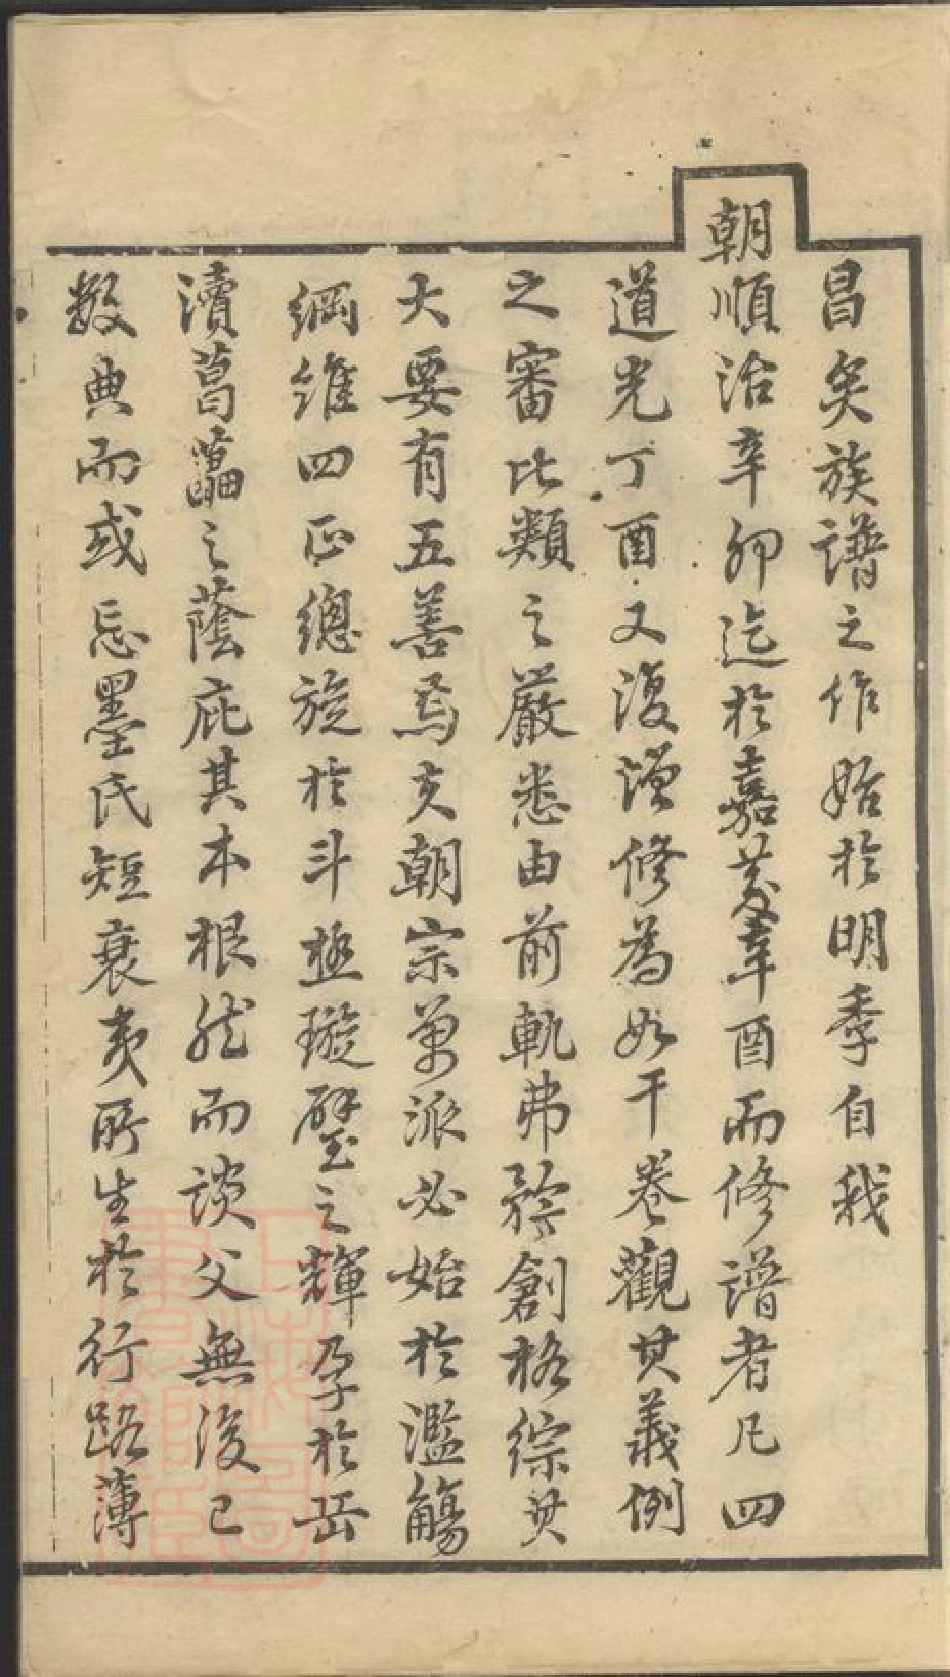 昌矣族譜之作始於明季自我
朝順治辛卯迄於嘉慶辛酉而修譜者凡四
道光丁酉又復增修為如干卷觀其義例
之審比類之嚴悉由前軌弗矜創格綜其
大要有五善焉夫朝宗萬派必始於濫觴
綱維四正總旋於斗極璇璧之輝孕於岳
瀆葛藟之蔭庇其本根然而談父無後已
數典而或忘墨氏短衰夷所生於行路薄